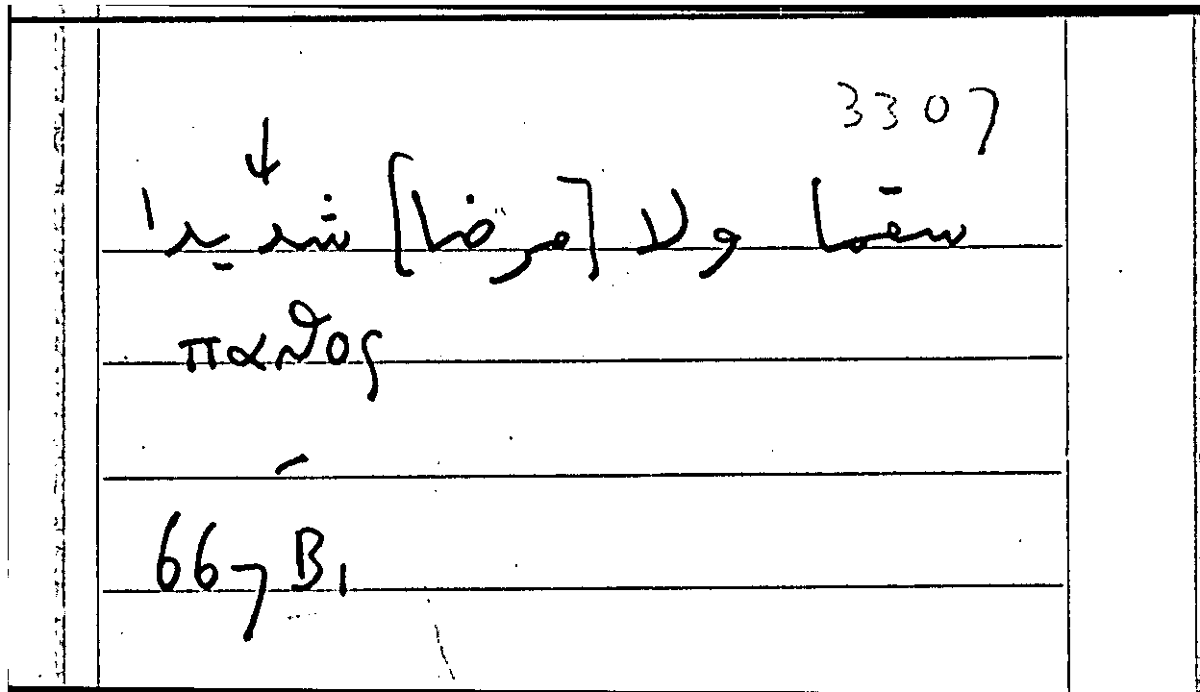 3307
سقما ولا [مرضا] شديدا
παθος
667 B1